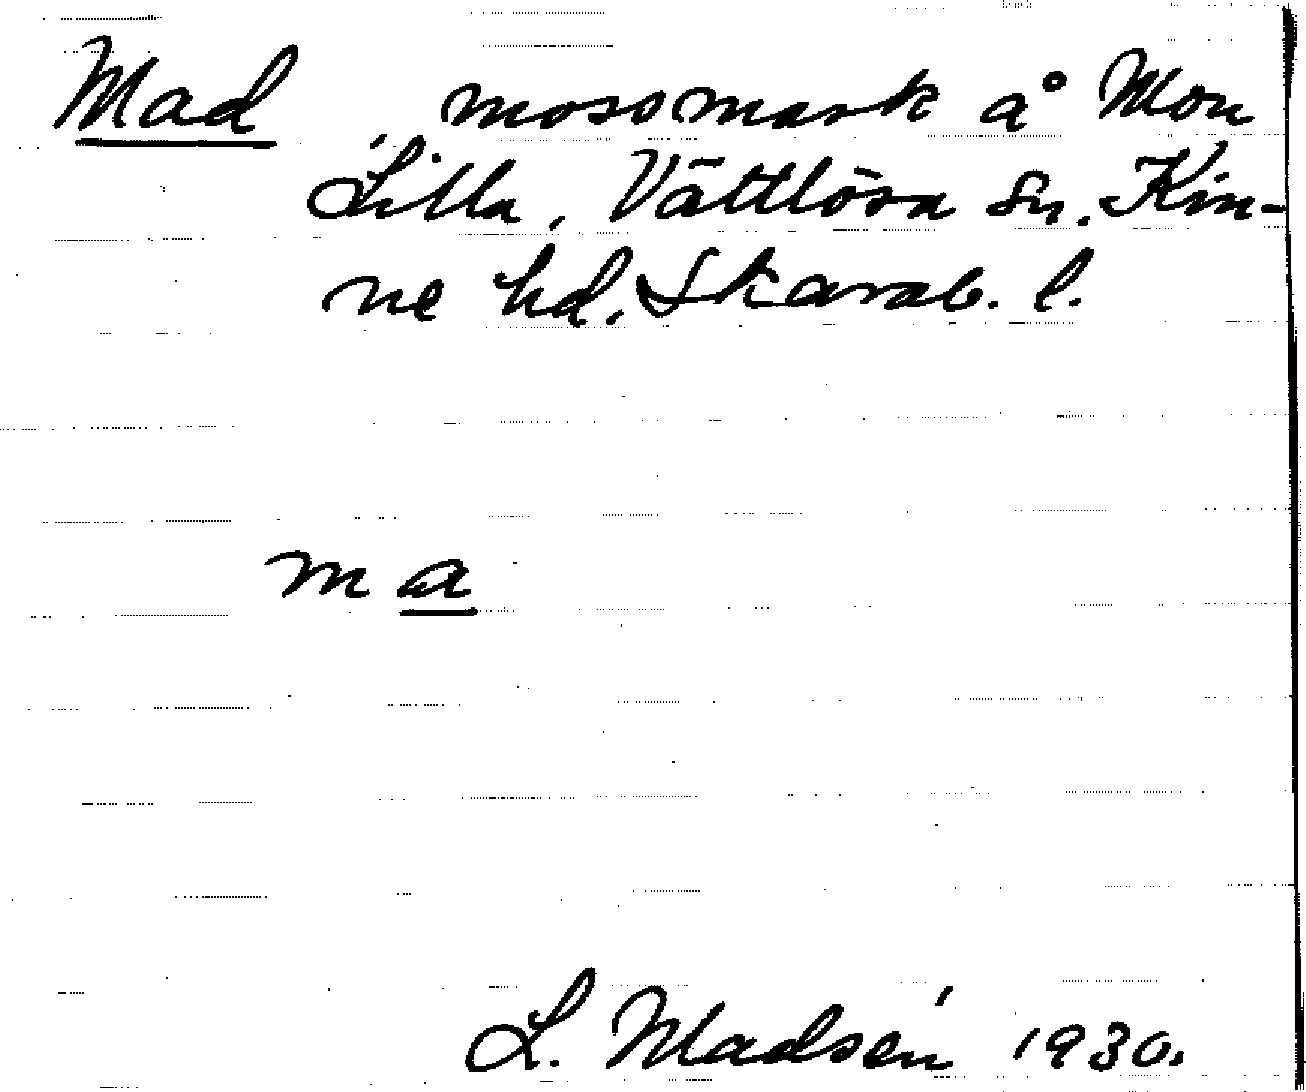 Mad, mossmark å Mon
Lilla, Vättlösa sn. Kin-
ne hd. Skarab. l.
m a
L. Madsén 1930.